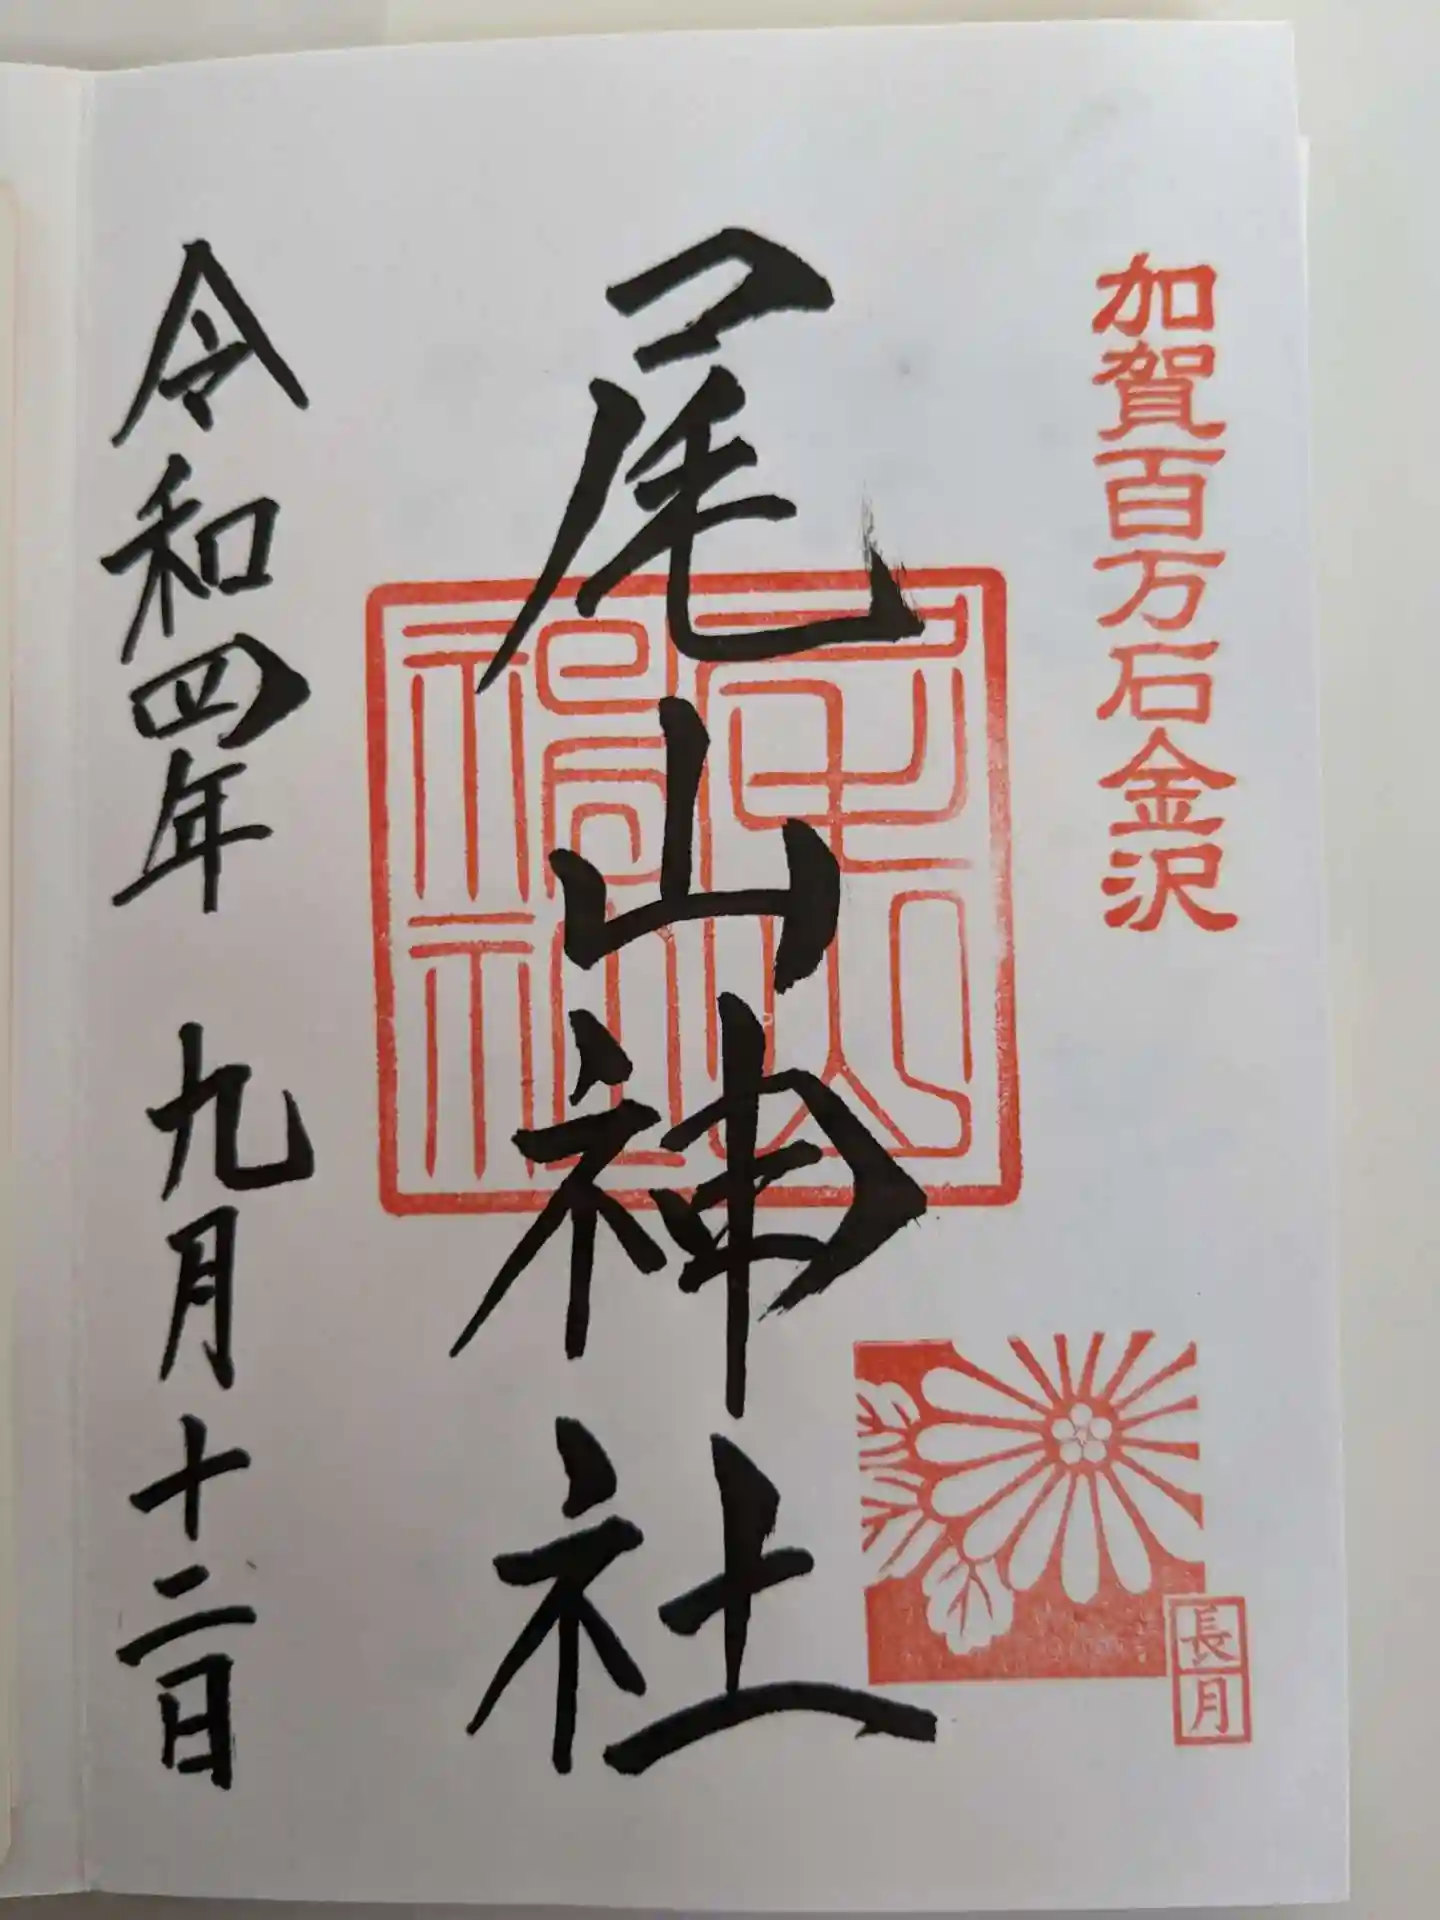 加賀百万石金沢
尾山神社
長月
令和四年 九月十二日